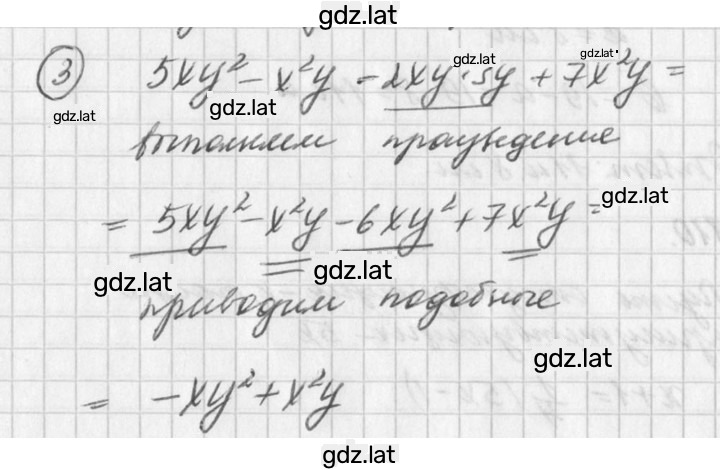 gdz.lat
③ 5xy² - x²y - 2xy·3y + 7x²y =
gdz.lat
gdz.lat
gdz.lat
gdz.lat
выполняем
= 5xy² - x²y - 6xy² + 7x²y =
gdz.lat
gdz.lat
gdz.lat
приводим подобные
gdz.lat
= -xy² + x²y
gdz.lat